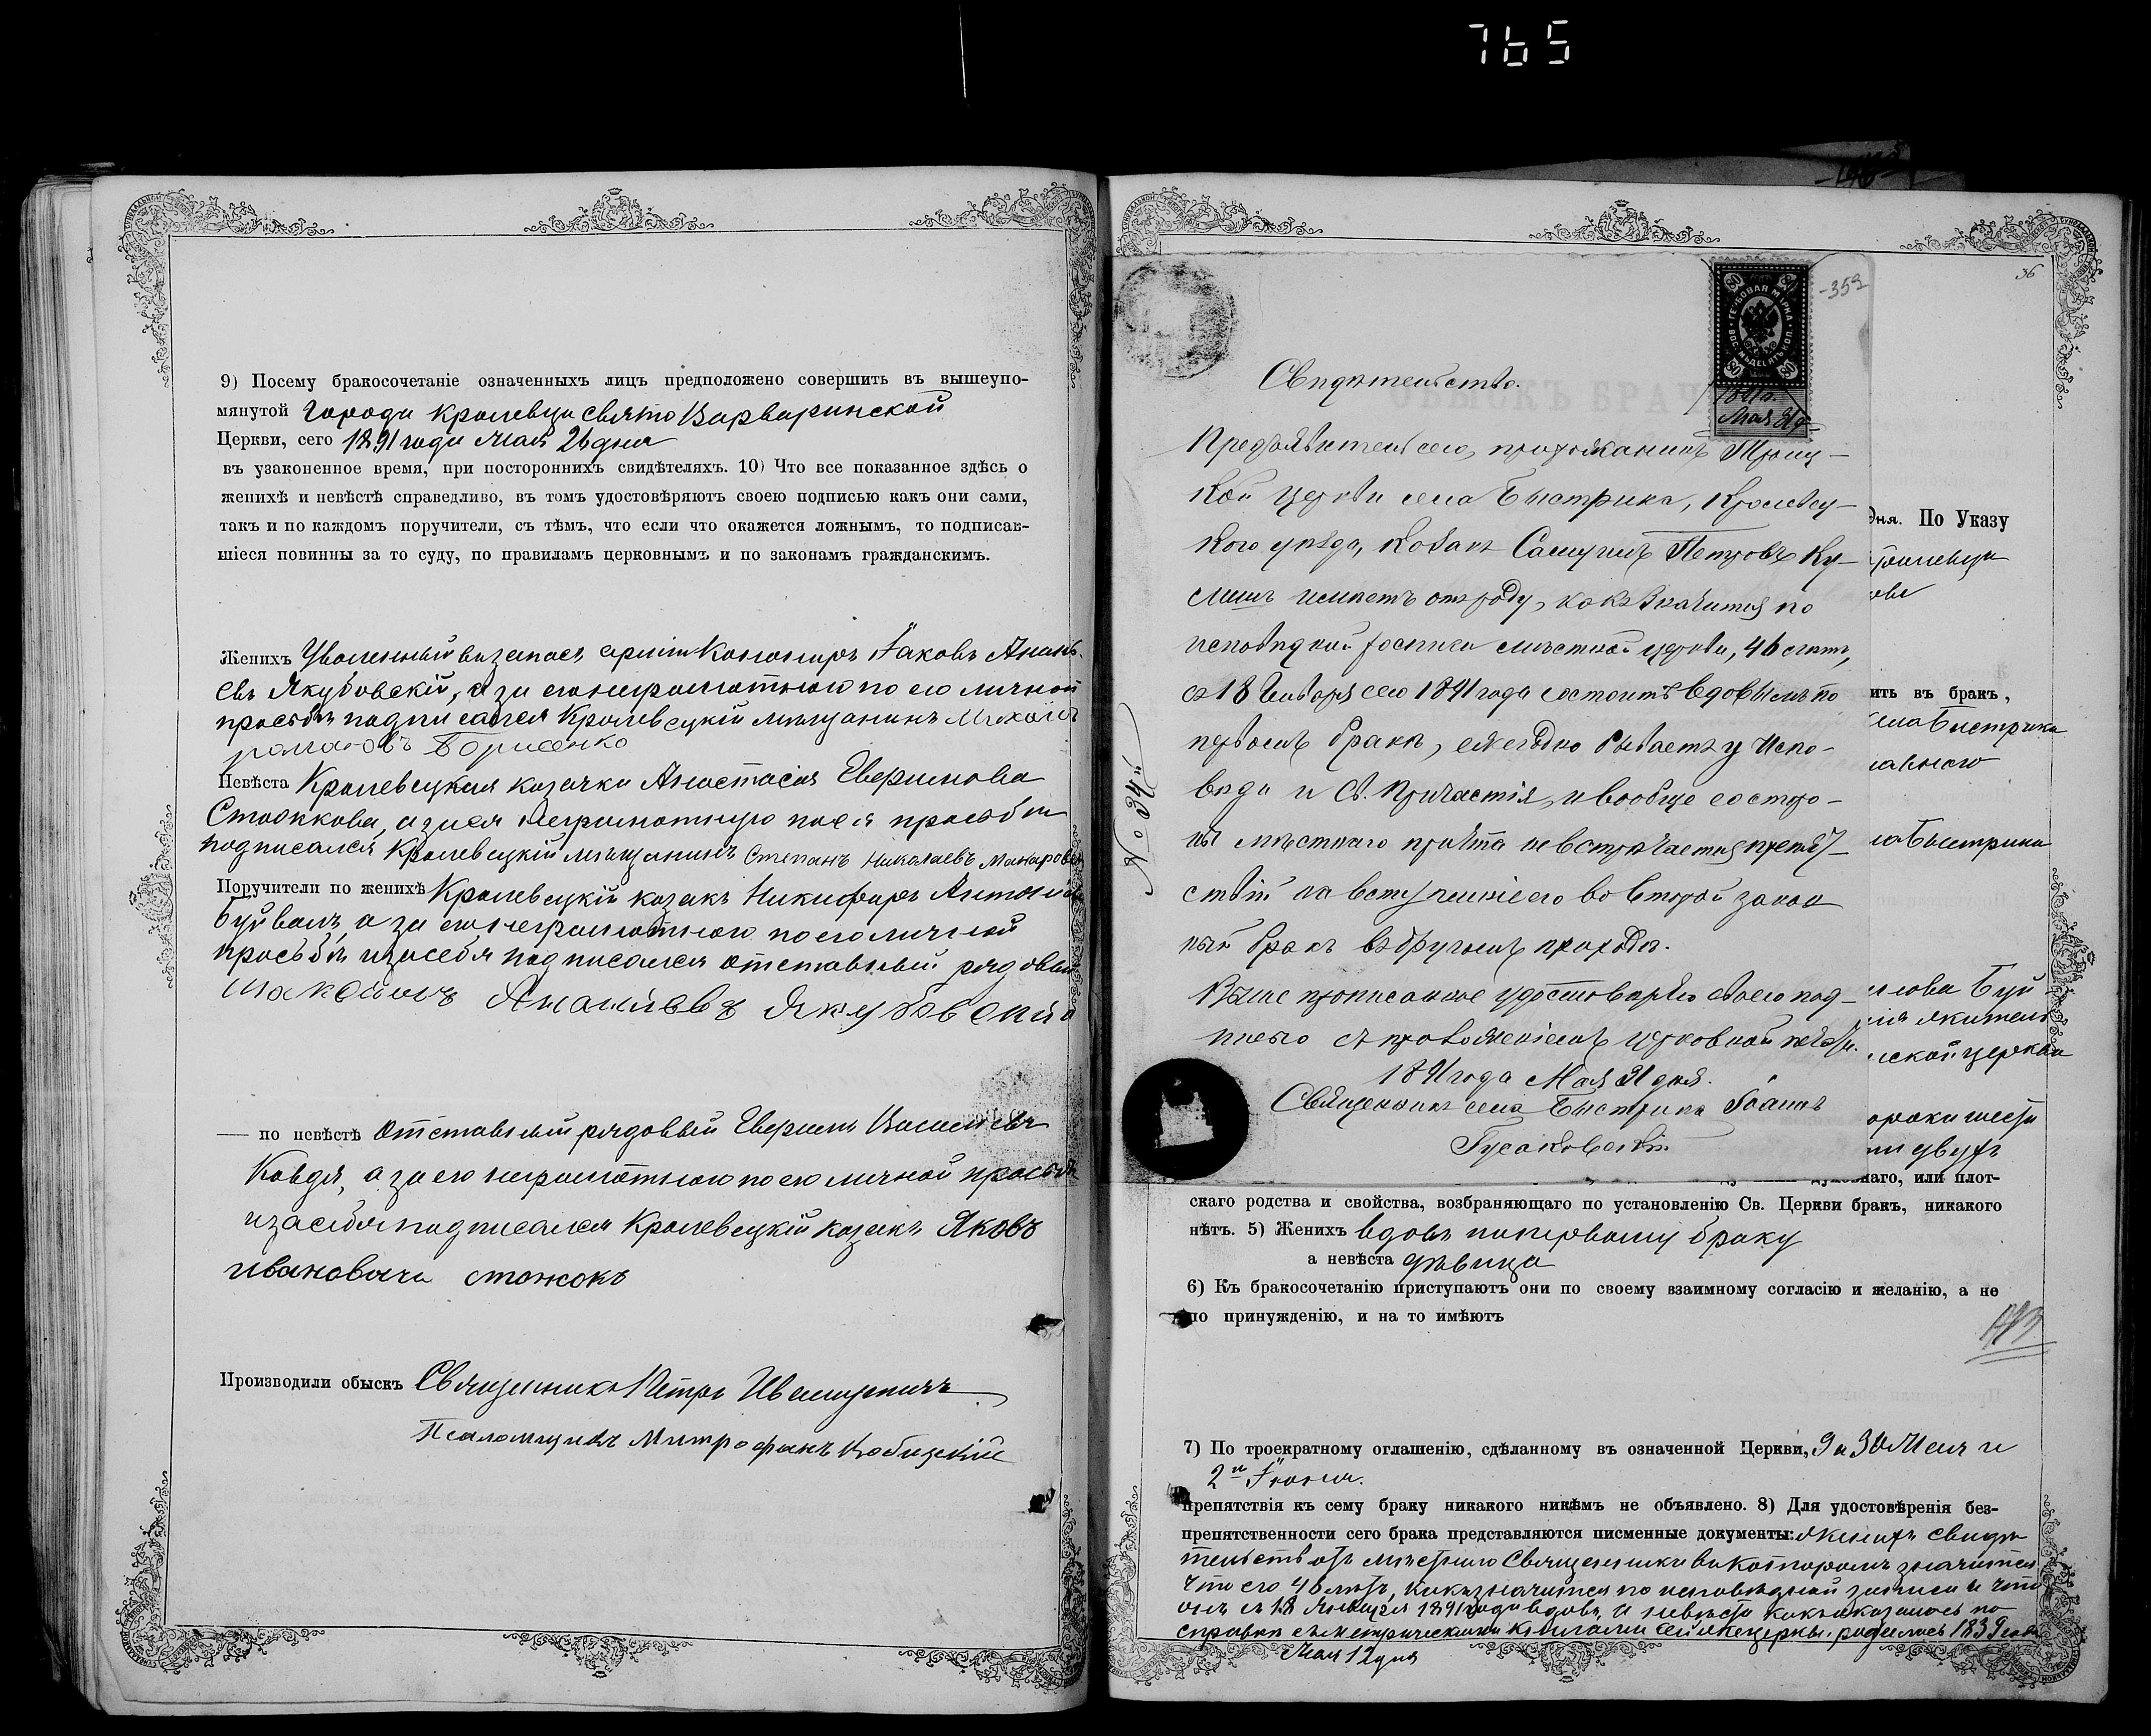 765
9) Посему бракосочетаніе означенныхъ лицъ предположено совершить въ вышеупо-
мянутой города Кролевца Свято Варваринской
Церкви, сего 1891 года Мая 26 дня
въ узаконенное время, при постороннихъ свидѣтеляхъ. 10) Что все показанное здѣсь о
женихѣ и невѣстѣ справедливо, въ томъ удостовѣряютъ своею подписью какъ они сами,
такъ и по каждомъ поручители, съ тѣмъ, что если что окажется ложнымъ, то подписав-
шіеся повинны за то суду, по правиламъ церковнымъ и по законамъ гражданскимъ.
Женихъ Уволенный въ запасъ арміи Канониръ Іаковъ Анань-
евъ Якубовскій, а за его неграмотного по его личной
просьбѣ подписался Кролевецкій мѣщанинъ Михаилъ
романовъ Борисенко
Невѣста Кролевецкая казачка Анастасія Евфимова
а за нея неграмотную по ея просьбѣ
подписался Кролевецкій мѣщанинъ Степанъ Николаевъ
Поручители по женихѣ Кролевецкій казакъ Никифоръ
Буйвалъ, а за его неграмотного по его личной
просьбѣ и за себя подписался отставный рядовый
Ананьевъ Якубовскій
— по невѣстѣ Отставный рядовый Евфимъ Васильевъ
Ковдя, а за его неграмотного по его личной просьбѣ
и за себя подписался Кролевецкій казакъ Яковъ
ивановичъ стожокъ
Производили обыскъ Священникъ Петръ
Псаломщикъ Митрофанъ
36
-359
ГЕРБОВАЯ МАРКА
ВОСЕМЬДЕСЯТЪ КОП.
80
1891 г.
Мая 31 д.
Свидѣтельство.
Предъявитель сего, прихожанинъ Троиц-
кой церкви села Быстрика, Кролевец-
кого уѣзда, козакъ Самуилъ Петровъ Ку-
имѣетъ отъ роду, какъ значится по
исповѣдной росписи мѣстной церкви, 46 лѣтъ,
съ 18 Января сего 1891 года состоитъ вдовымъ по
первомъ бракѣ, ежегодно бываетъ у Испо-
вѣди и Св. Причастія, и вообще со сторо-
ны мѣстнаго причта не встрѣчается препят-
ствій на вступленіе его во второй закон
ный бракъ въ другомъ приходѣ.
Выше прописанное удостовѣряю своею под-
писью съ приложеніемъ церковной печати.
1891 года Мая 31 дня.
Священникъ села Быстрика Іоаннъ
Гусаковскій
№ 34й
дня. По Указу
ить въ бракъ,
села Быстрика
Быстрика
Буй
ской церкви
сороки шести
двухъ
духовнаго, или плот-
скаго родства и свойства, возбраняющаго по установленію Св. Церкви бракъ, никакого
нѣтъ. 5) Женихъ вдовъ по первому браку
а невѣста дѣвица
6) Къ бракосочетанію приступаютъ они по своему взаимному согласію и желанію, а не
по принужденію, и на то имѣютъ
7) По троекратному оглашенію, сдѣланному въ означенной Церкви, 9 и 30 Мая и
2го Іюня.
препятствія къ сему браку никакого никѣмъ не объявлено. 8) Для удостовѣренія без-
препятственности сего брака представляются писменные документы: жениха свидѣ
тельство отъ мѣстного Священника въ которомъ значится
что его 46 лѣтъ, какъ значится по исповѣдной записи и что
онъ съ 18 Января 1891 года вдовъ, и невѣста какъ оказалось по
справкѣ съ метрическими книгами сей же церкви, родилась 1839 года
Мая 12 дня